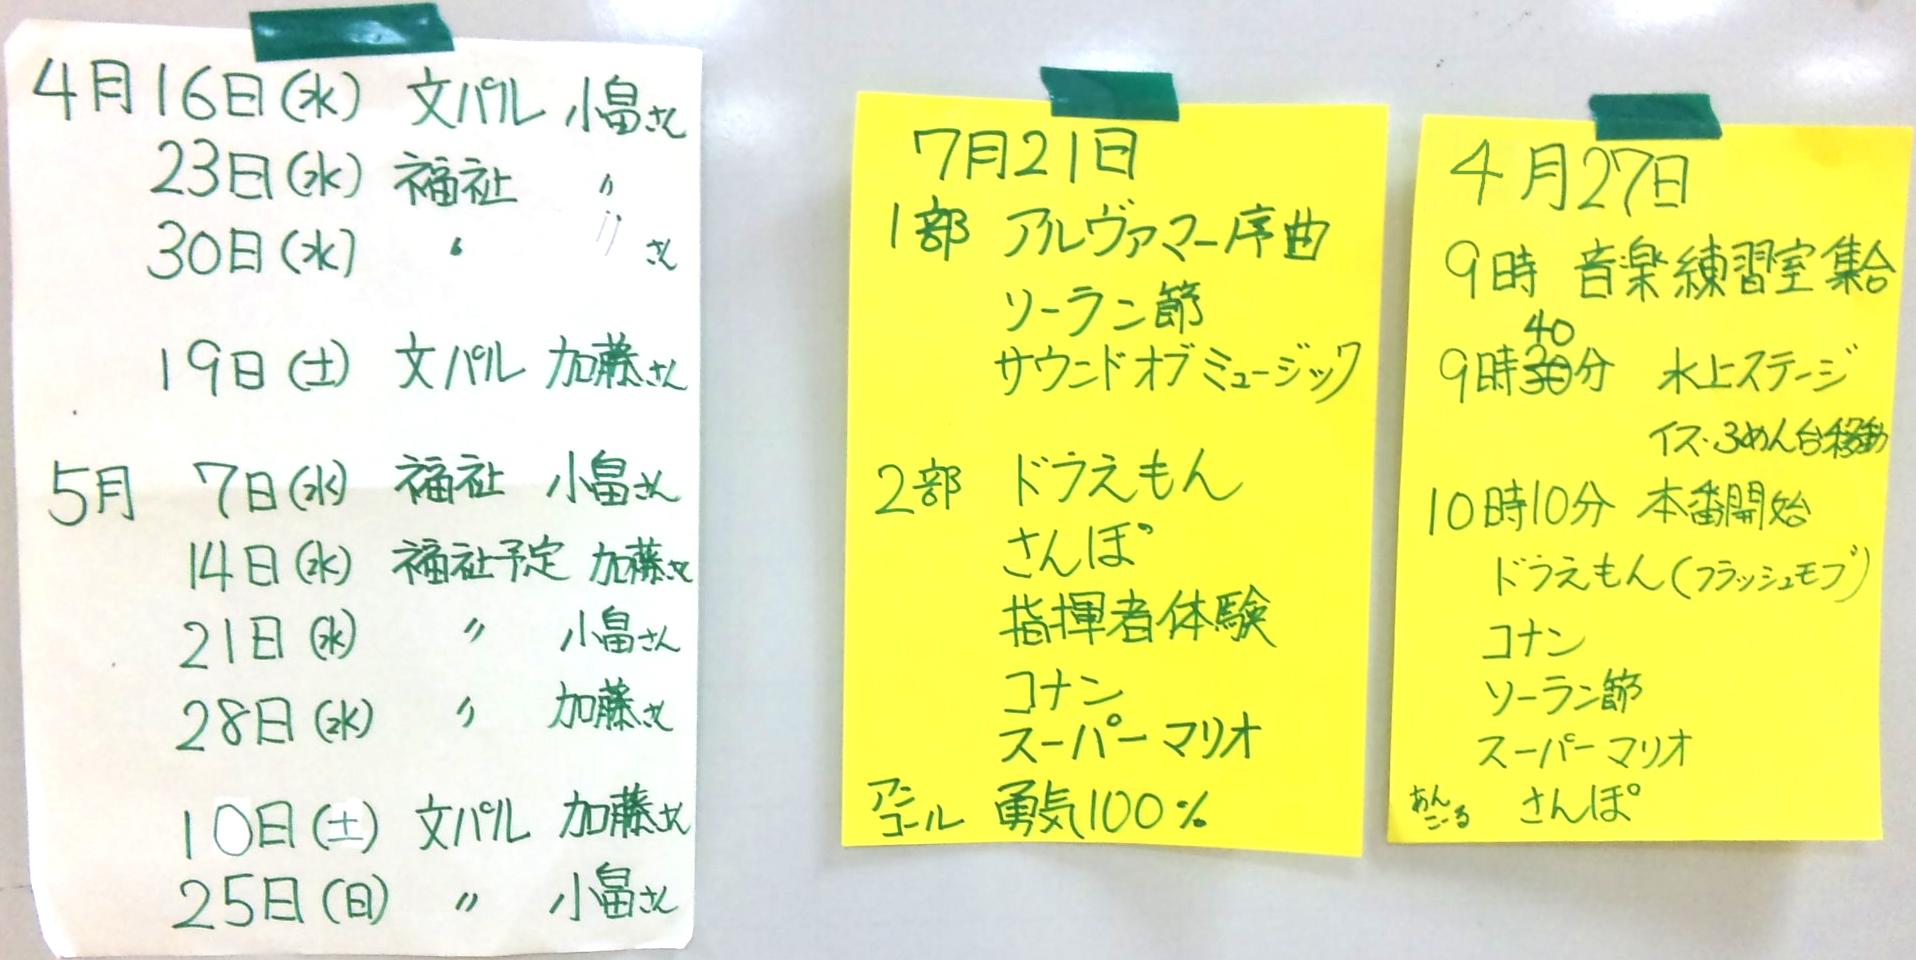 4月16日(水) 文パル 小畠さん
23日(水) 福祉 〃
30日(水) 〃 〃 さん
19日(土) 文パル 加藤さん
5月 7日(水) 福祉 小畠さん
14日(水) 福祉予定 加藤さん
21日(水) 〃 小畠さん
28日(水) 〃 加藤さん
10日(土) 文パル 加藤さん
25日(日) 〃 小畠さん
7月21日
1部 アルヴァマー序曲
ソーラン節
サウンドオブミュージック
2部 ドラえもん
さんぽ
指揮者体験
コナン
スーパーマリオ
アンコール 勇気100%
4月27日
9時 音楽練習室集合
40
9時30分 水上ステージ
イス・ふめん台移動
10時10分 本番開始
ドラえもん(フラッシュモブ)
コナン
ソーラン節
スーパーマリオ
あんこーる さんぽ